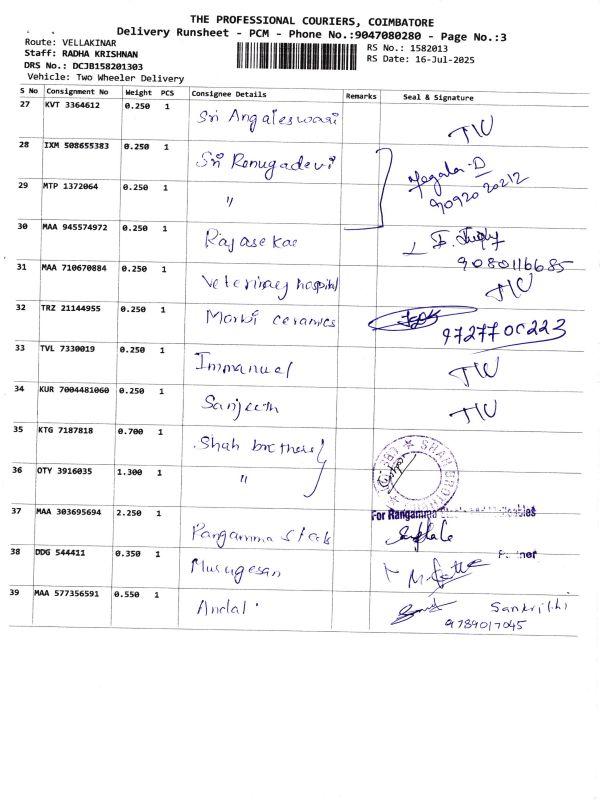 THE PROFESSIONAL COURIERS, COIMBATORE
Delivery Runsheet - PCM - Phone No.:9047080280 - Page No.:3
Route: VELLAKINAR
Staff: RADHA KRISHNAN
DRS No.: DCJB158201303
Vehicle: Two Wheeler Delivery
RS No.: 1582013
RS Date: 16-Jul-2025
S No Consignment No Weight PCS Consignee Details Remarks Seal & Signature
27 KVT 3364612 0.250 1 Sri Angaleswari
28 IXM 508655383 0.250 1 Sri Renugadevi
29 MTP 1372064 0.250 1 "
Megala.D
9092020212
30 MAA 945574972 0.250 1 Rajasekae
9080116685
31 MAA 710670884 0.250 1 Veterinary hospital
32 TRZ 21144955 0.250 1 Morbi ceramics
9727700223
33 TVL 7330019 0.250 1 Immanuel
34 KUR 7004481060 0.250 1 Sanjeeth
35 KTG 7187818 0.700 1 Shah brothers
SHAH BROTH
36 OTY 3916035 1.300 1 "
37 MAA 303695694 2.250 1 Rangamma Steels
For Rangamma
38 DDG 544411 0.350 1 Murugesan
39 MAA 577356591 0.550 1 Andal
9789017045